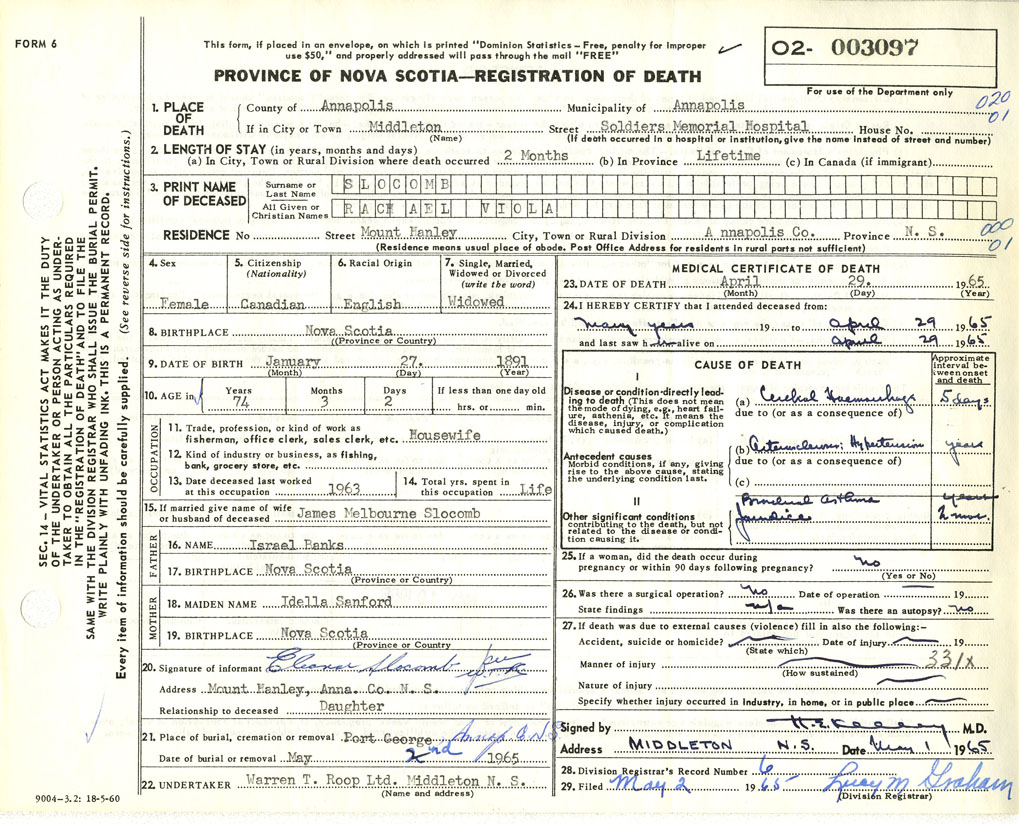 FORM 6
This form, if placed in an envelope, on which is printed "Dominion Statistics – Free, penalty for improper
use $50," and properly addressed will pass through the mail "FREE"
PROVINCE OF NOVA SCOTIA—REGISTRATION OF DEATH
O2- 003097
For use of the Department only
020
01
1. PLACE OF DEATH
County of Annapolis Municipality of Annapolis
If in City or Town Middleton Street Soldiers Memorial Hospital House No.
(Name) (If death occurred in a hospital or institution, give the name instead of street and number)
2. LENGTH OF STAY (in years, months and days)
(a) In City, Town or Rural Division where death occurred 2 Months (b) In Province Lifetime (c) In Canada (if immigrant)
3. PRINT NAME OF DECEASED
Surname or Last Name SLOCOMB
All Given or Christian Names RACHAEL VIOLA
RESIDENCE No Street Mount Hanley City, Town or Rural Division A nnapolis Co. Province N. S.
000
01
(Residence means usual place of abode. Post Office Address for residents in rural parts not sufficient)
4. Sex
Female
5. Citizenship
(Nationality)
Canadian
6. Racial Origin
English
7. Single, Married, Widowed or Divorced
(write the word)
Widowed
8. BIRTHPLACE Nova Scotia
(Province or Country)
9. DATE OF BIRTH January 27. 1891
(Month) (Day) (Year)
10. AGE in
Years 74
Months 3
Days 2
If less than one day old
hrs. or min.
OCCUPATION
11. Trade, profession, or kind of work as
fisherman, office clerk, sales clerk, etc. Housewife
12. Kind of industry or business, as fishing,
bank, grocery store, etc.
13. Date deceased last worked
at this occupation 1963
14. Total yrs. spent in
this occupation Life
15. If married give name of wife
or husband of deceased James Melbourne Slocomb
FATHER
16. NAME Israel Banks
17. BIRTHPLACE Nova Scotia
(Province or Country)
MOTHER
18. MAIDEN NAME Idella Sanford
19. BIRTHPLACE Nova Scotia
(Province or Country
20. Signature of informant Eleanor Slocomb
Address Mount Hanley, Anna. Co. N. S.
Relationship to deceased Daughter
21. Place of burial, cremation or removal Port George Annap Co N.S.
Date of burial or removal May 2nd 1965
22. UNDERTAKER Warren T. Roop Ltd. Middleton N. S.
(Name and address)
MEDICAL CERTIFICATE OF DEATH
23. DATE OF DEATH April 29. 1965
(Month) (Day) (Year)
24. I HEREBY CERTIFY that I attended deceased from:
many years 19 to april 29 1965
and last saw her alive on april 29 1965
CAUSE OF DEATH
Approximate interval between onset and death
I
Disease or condition directly leading to death (This does not mean the mode of dying, e.g., heart failure, asthenia, etc. It means the disease, injury, or complication which caused death.)
(a) Cerebral Haemorrhage 5 days
due to (or as a consequence of)
Antecedent causes
Morbid conditions, if any, giving rise to the above cause, stating the underlying condition last.
(b) Hypertension years
due to (or as a consequence of)
(c)
II
Other significant conditions
contributing to the death, but not related to the disease or condition causing it.
Bronchial asthma years
Jaundice 2 mos.
25. If a woman, did the death occur during
pregnancy or within 90 days following pregnancy? no
(Yes or No)
26. Was there a surgical operation? no Date of operation 19
State findings n/a Was there an autopsy? no
27. If death was due to external causes (violence) fill in also the following:–
Accident, suicide or homicide? Date of injury 19
(State which)
331X
Manner of injury
(How sustained)
Nature of injury
Specify whether injury occurred in industry, in home, or in public place
Signed by H. E. Kelley M.D.
Address MIDDLETON N.S. Date May 1 1965
28. Division Registrar's Record Number 6
29. Filed May 2 1965 Lucy M Graham
(Division Registrar)
9004–3.2: 18-5-60
SEC. 14 – VITAL STATISTICS ACT MAKES IT THE DUTY
OF THE UNDERTAKER OR PERSON ACTING AS UNDER-
TAKER TO OBTAIN ALL THE PARTICULARS REQUIRED
IN THE "REGISTRATION OF DEATH" AND TO FILE THE
SAME WITH THE DIVISION REGISTRAR WHO SHALL ISSUE THE BURIAL PERMIT.
WRITE PLAINLY WITH UNFADING INK. THIS IS A PERMANENT RECORD.
Every item of information should be carefully supplied. (See reverse side for instructions.)